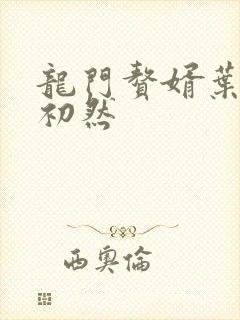 龍門贅婿葉
初然
西奧倫